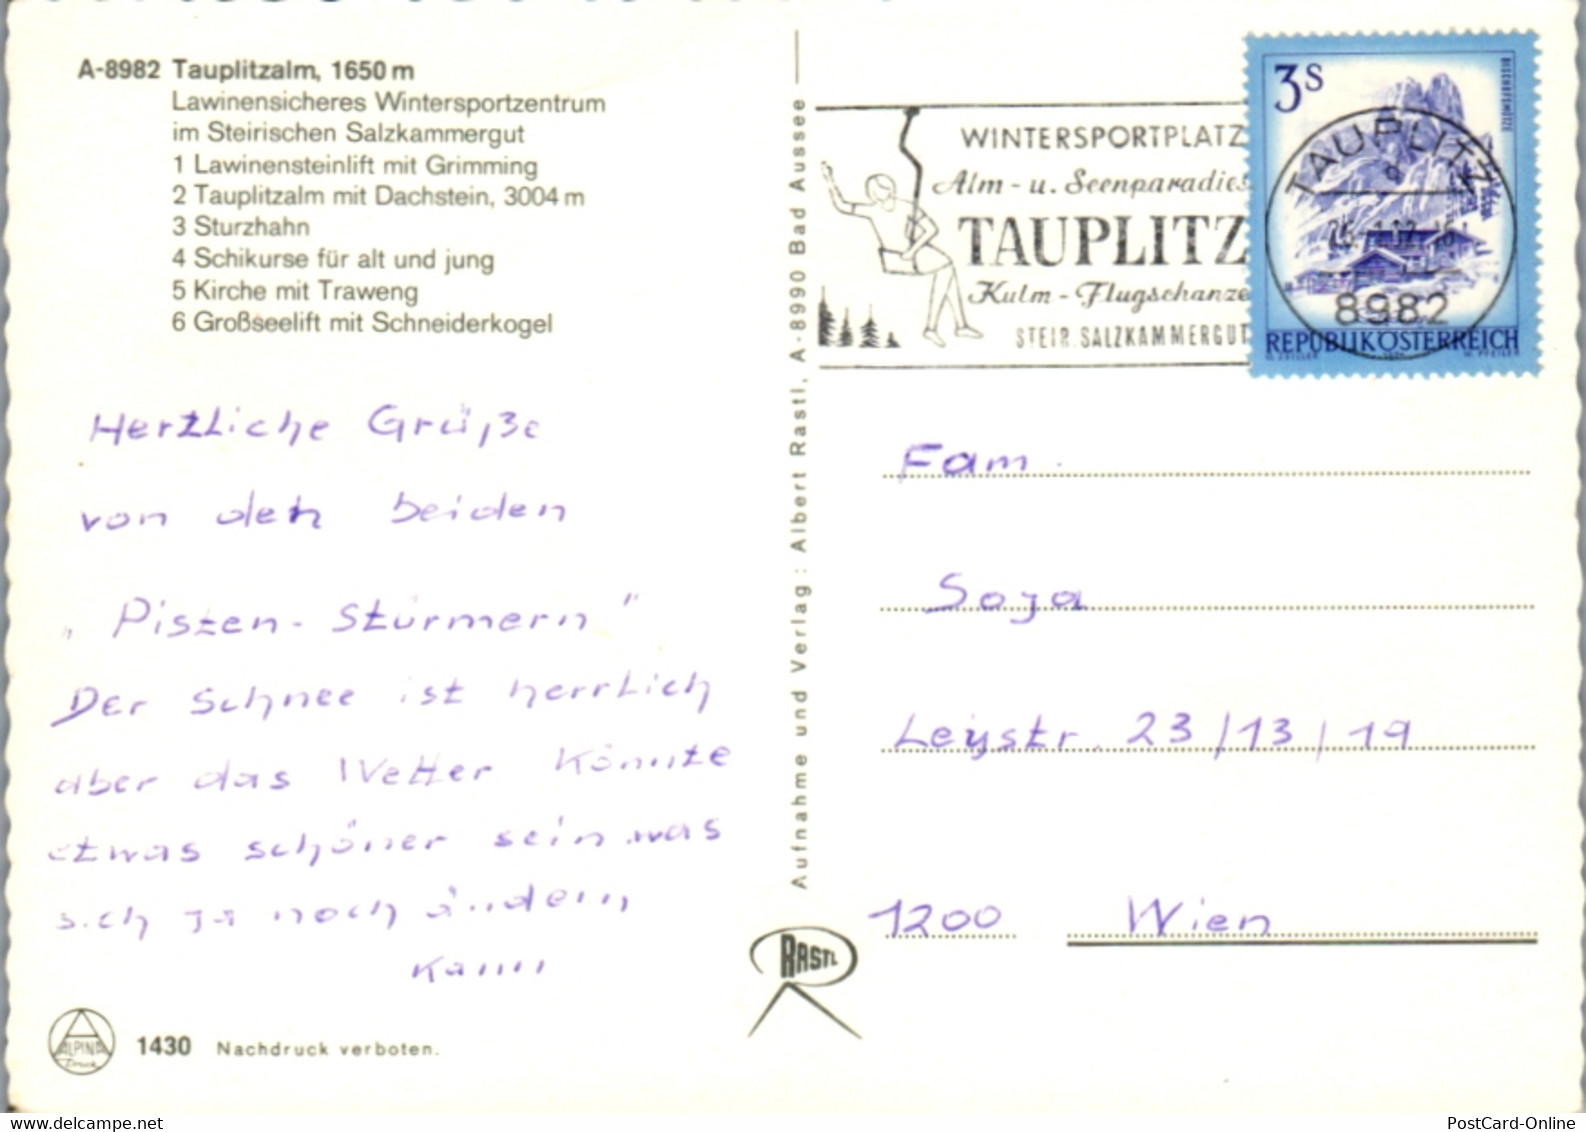 A-8982 Tauplitzalm, 1650 m
Lawinensicheres Wintersportzentrum
im Steirischen Salzkammergut
1 Lawinensteinlift mit Grimming
2 Tauplitzalm mit Dachstein, 3004 m
3 Sturzhahn
4 Schikurse für alt und jung
5 Kirche mit Traweng
6 Großseelift mit Schneiderkogel
Herzliche Grüße
von den beiden
„Pisten-Stürmern"
Der Schnee ist herrlich
aber das Wetter könnte
etwas schöner sein was
sich ja noch ändern
kann
ALPINA
Druck
1430 Nachdruck verboten.
Aufnahme und Verlag: Albert Rastl, A-8990 Bad Aussee
RASTL
WINTERSPORTPLATZ
Alm- u. Seenparadies
TAUPLITZ
Kulm-Flugschanze
STEIR. SALZKAMMERGUT
3S
BISCHOFSMÜTZE
TAUPLITZ
8982
REPUBLIK ÖSTERREICH
Fam.
Soya
Leystr. 23/13/19
1200 Wien
PostCard-Online